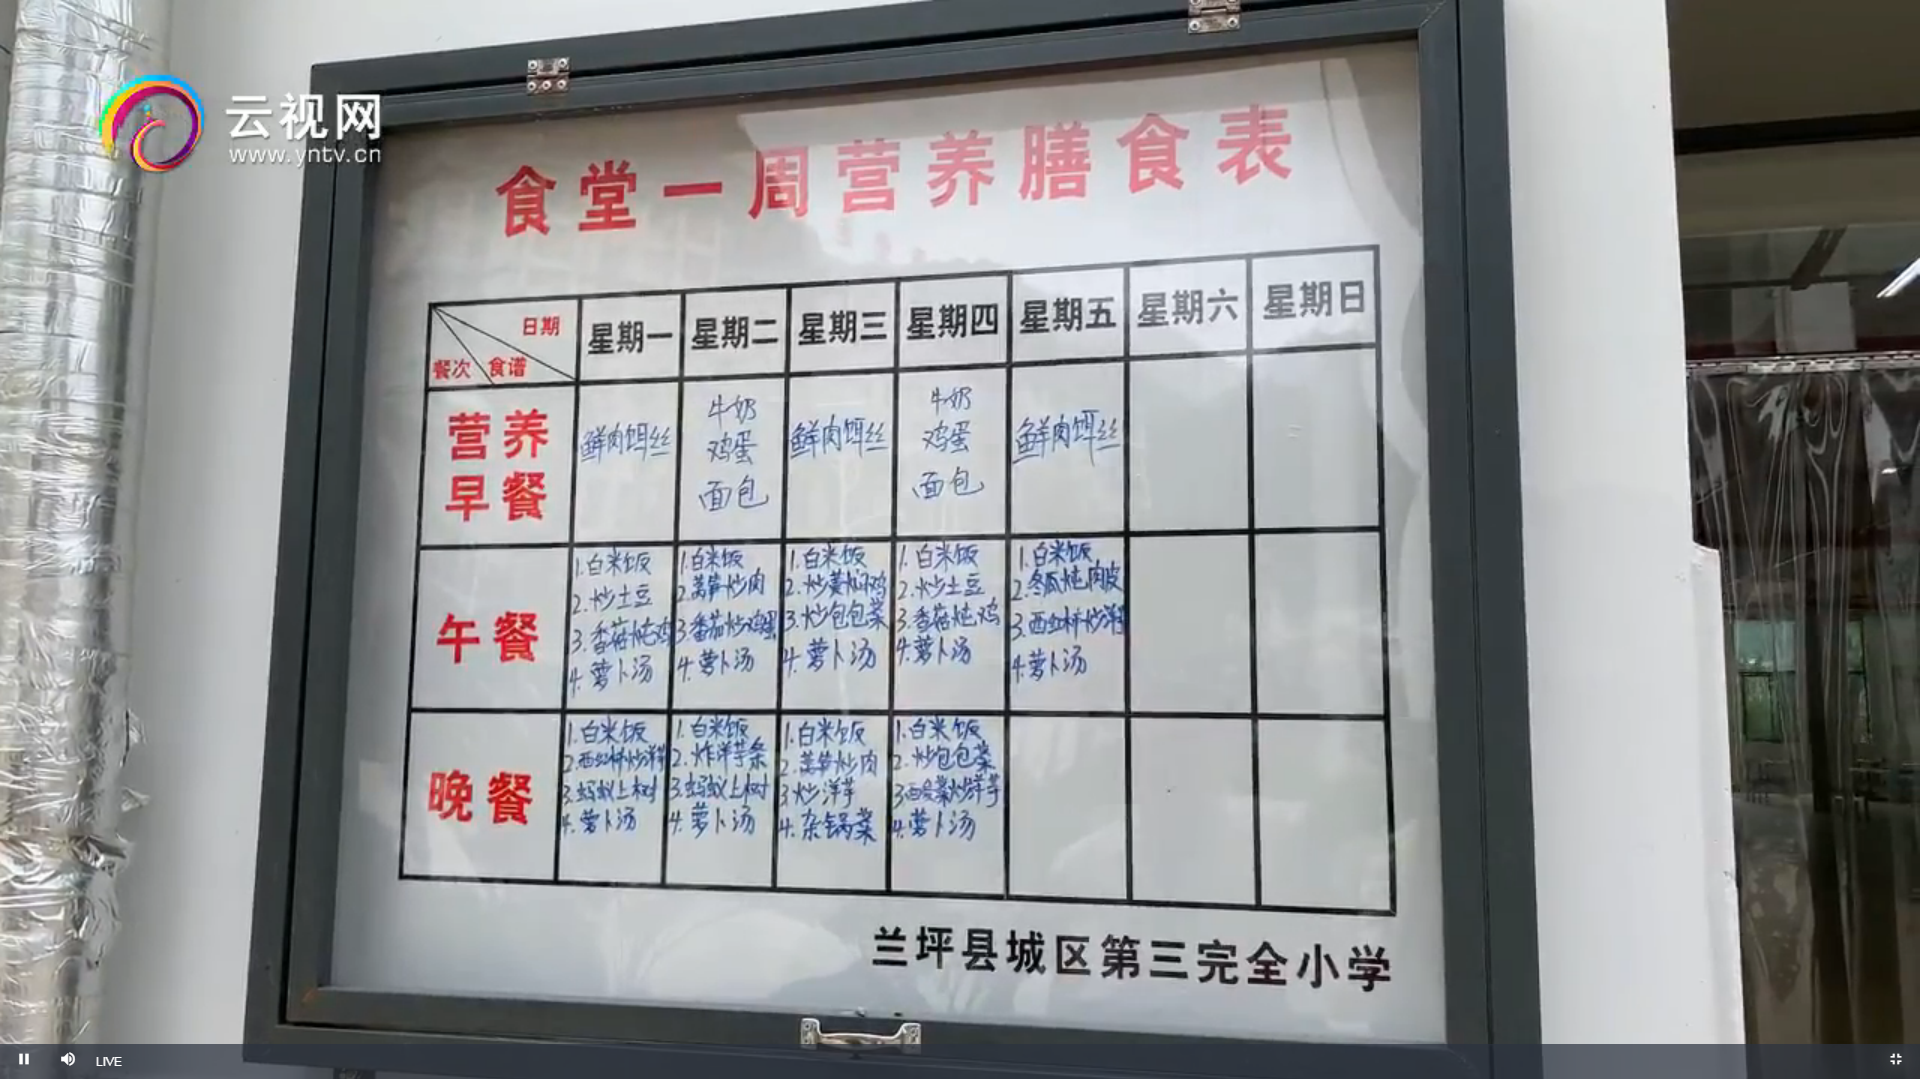 云视网
www.yntv.cn
食堂一周营养膳食表
日期
餐次 食谱
星期一 星期二 星期三 星期四 星期五 星期六 星期日
营养
早餐
鲜肉饵丝
牛奶
鸡蛋
面包
鲜肉饵丝
牛奶
鸡蛋
面包
鲜肉饵丝
午餐
1.白米饭
2.炒土豆
3.香菇炖鸡
4.萝卜汤
1.白米饭
2.莴笋炒肉
3.番茄炒鸡蛋
4.萝卜汤
1.白米饭
2.炒黄焖鸡
3.炒包包菜
4.萝卜汤
1.白米饭
2.炒土豆
3.香菇炖鸡
4.萝卜汤
1.白米饭
2.冬瓜炖肉皮
3.西红柿炒洋
4.萝卜汤
晚餐
1.白米饭
2.西红柿炒洋芋
3.蚂蚁上树
4.萝卜汤
1.白米饭
2.炸洋芋条
3.蚂蚁上树
4.萝卜汤
1.白米饭
2.莴笋炒肉
3.炒洋芋
4.杂锅菜
1.白米饭
2.炒包包菜
3.炒洋芋
4.萝卜汤
兰坪县城区第三完全小学
LIVE